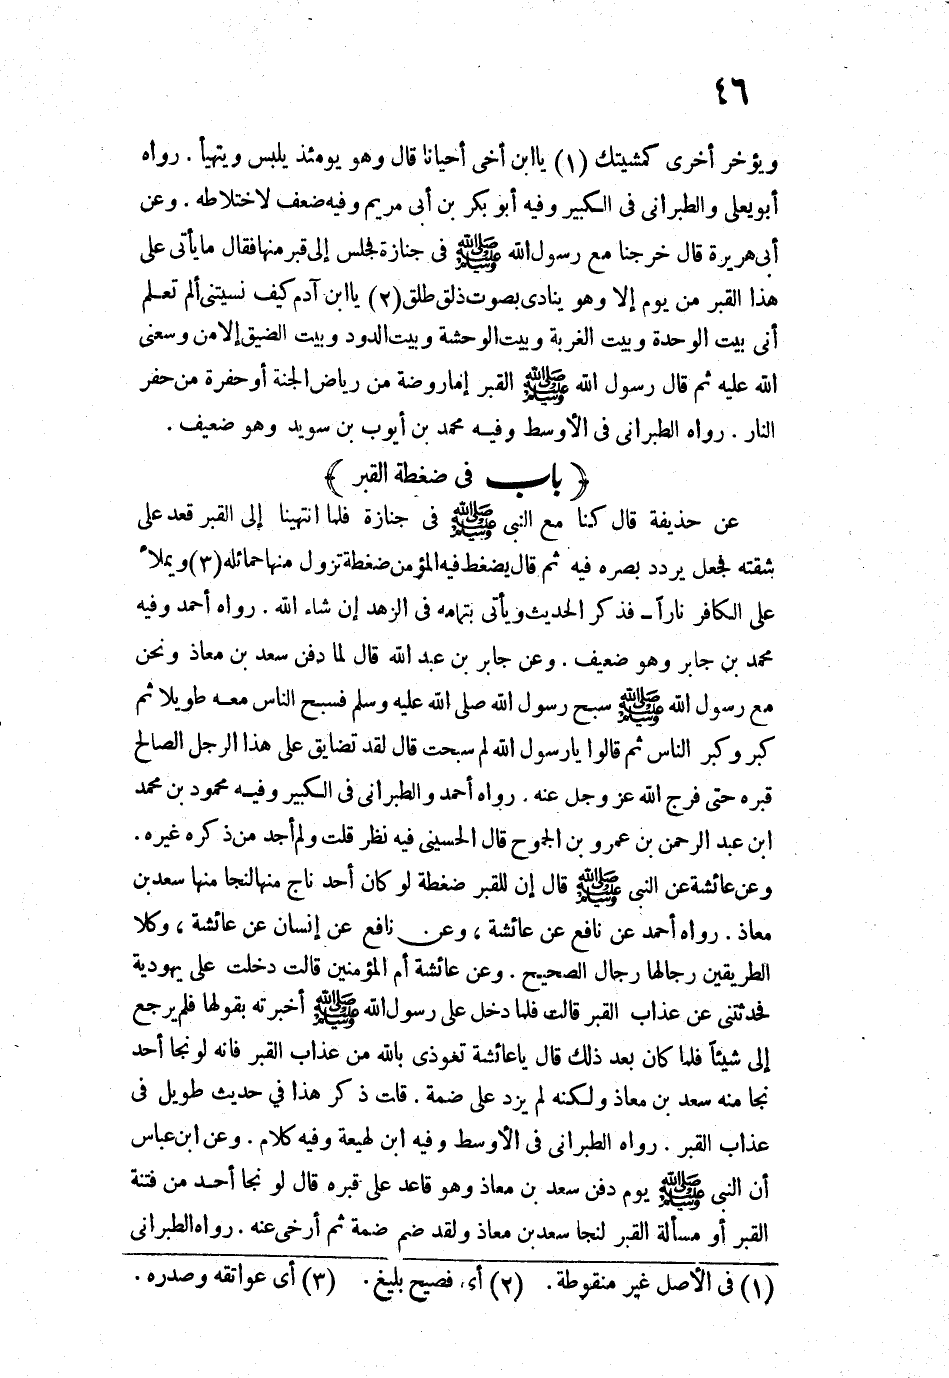 ٤٦
ويؤخر أخرى كمشيتك (١) ياابن أخى أحيانا قال وهو يومئذ يلبس ويتهيأ . رواه
أبويعلى والطبرانى فى الكبير وفيه أبو بكر بن أبى مريم وفيه ضعف لاختلاطه . وعن
أبى هريرة قال خرجنا مع رسول الله ﷺ فى جنازة فجلس إلى قبر منها فقال ما يأتى على
هذا القبر من يوم إلا وهو ينادى بصوت ذلق طلق (٢) ياابن آدم كيف نسيتنى ألم تعلم
أنى بيت الوحدة وبيت الغربة وبيت الوحشة وبيت الدود وبيت الضيق إلا من وسعنى
الله عليه ثم قال رسول الله ﷺ القبر إما روضة من رياض الجنة أو حفرة من حفر
النار . رواه الطبرانى فى الأوسط وفيه محمد بن أيوب بن سويد وهو ضعيف .
﴿ باب فى ضغطة القبر ﴾
عن حذيفة قال كنا مع النبى ﷺ فى جنازة فلما انتهينا إلى القبر قعد على
شقته فجعل يردد بصره فيه ثم قال يضغط فيه المؤمن ضغطة تزول منها حمائله (٣) ويملأ
على الكافر ناراً ـ فذكر الحديث ويأتى بتمامه فى الزهد إن شاء الله . رواه أحمد وفيه
محمد بن جابر وهو ضعيف . وعن جابر بن عبد الله قال لما دفن سعد بن معاذ ونحن
مع رسول الله ﷺ سبح رسول الله صلى الله عليه وسلم فسبح الناس معه طويلا ثم
كبر وكبر الناس ثم قالوا يارسول الله لم سبحت قال لقد تضايق على هذا الرجل الصالح
قبره حتى فرج الله عز وجل عنه . رواه أحمد والطبرانى فى الكبير وفيه محمود بن محمد
ابن عبد الرحمن بن عمرو بن الجموح قال الحسينى فيه نظر قلت ولم أجد من ذكره غيره .
وعن عائشة عن النبى ﷺ قال إن للقبر ضغطة لو كان أحد ناج منها لنجا منها سعد بن
معاذ . رواه أحمد عن نافع عن عائشة ، وعن نافع عن إنسان عن عائشة ، وكلا
الطريقين رجالها رجال الصحيح . وعن عائشة أم المؤمنين قالت دخلت على يهودية
فحدثتنى عن عذاب القبر قالت فلما دخل على رسول الله ﷺ أخبرته بقولها فلم يرجع
إلى شيئاً فلما كان بعد ذلك قال ياعائشة تعوذى بالله من عذاب القبر فانه لو نجا أحد
نجا منه سعد بن معاذ ولكنه لم يزد على ضمة . قلت ذكر هذا في حديث طويل فى
عذاب القبر . رواه الطبرانى فى الأوسط وفيه ابن لهيعة وفيه كلام . وعن ابن عباس
أن النبى ﷺ يوم دفن سعد بن معاذ وهو قاعد على قبره قال لو نجا أحد من فتنة
القبر أو مسألة القبر لنجا سعد بن معاذ ولقد ضم ضمة ثم أرخى عنه . رواه الطبرانى
(١) فى الأصل غير منقوطة . (٢) أى فصيح بليغ . (٣) أى عواتقه وصدره .